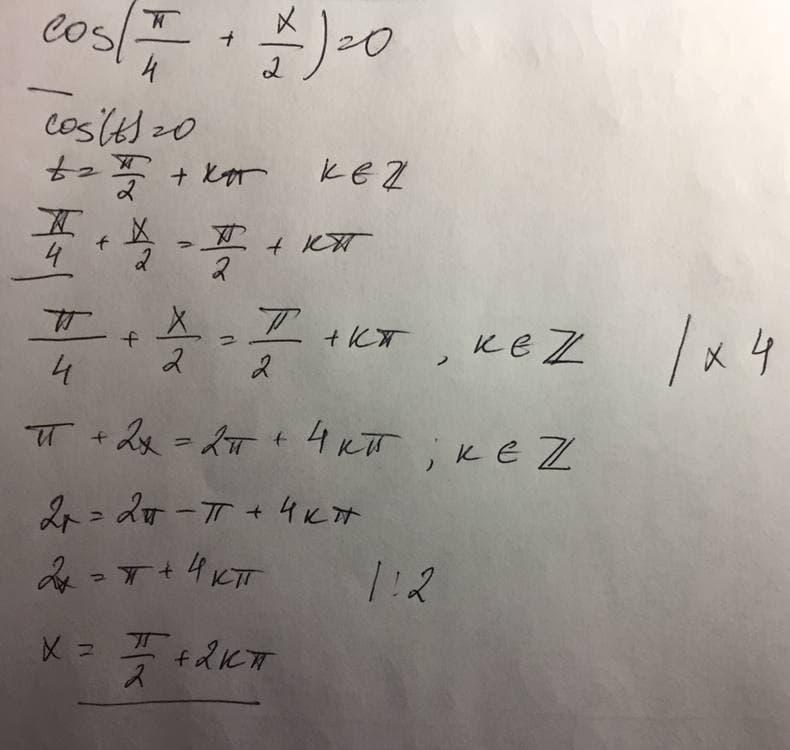 cos(π/4 + x/2) = 0
cos(t) = 0
t = π/2 + kπ k ∈ ℤ
π/4 + x/2 = π/2 + kπ
π/4 + x/2 = π/2 + kπ , k ∈ ℤ / x 4
π + 2x = 2π + 4kπ ; k ∈ ℤ
2x = 2π - π + 4kπ
2x = π + 4kπ /:2
x = π/2 + 2kπ